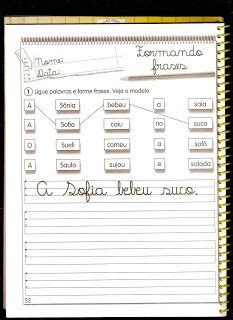 Nome:
Data:
Formando
frases
1 Ligue palavras e forme frases. Veja o modelo.
A Sônia bebeu a saia
A Sofia caiu no suco
O Sueli comeu a sofá
A Saulo sujou e salada
A Sofia bebeu suco.
52